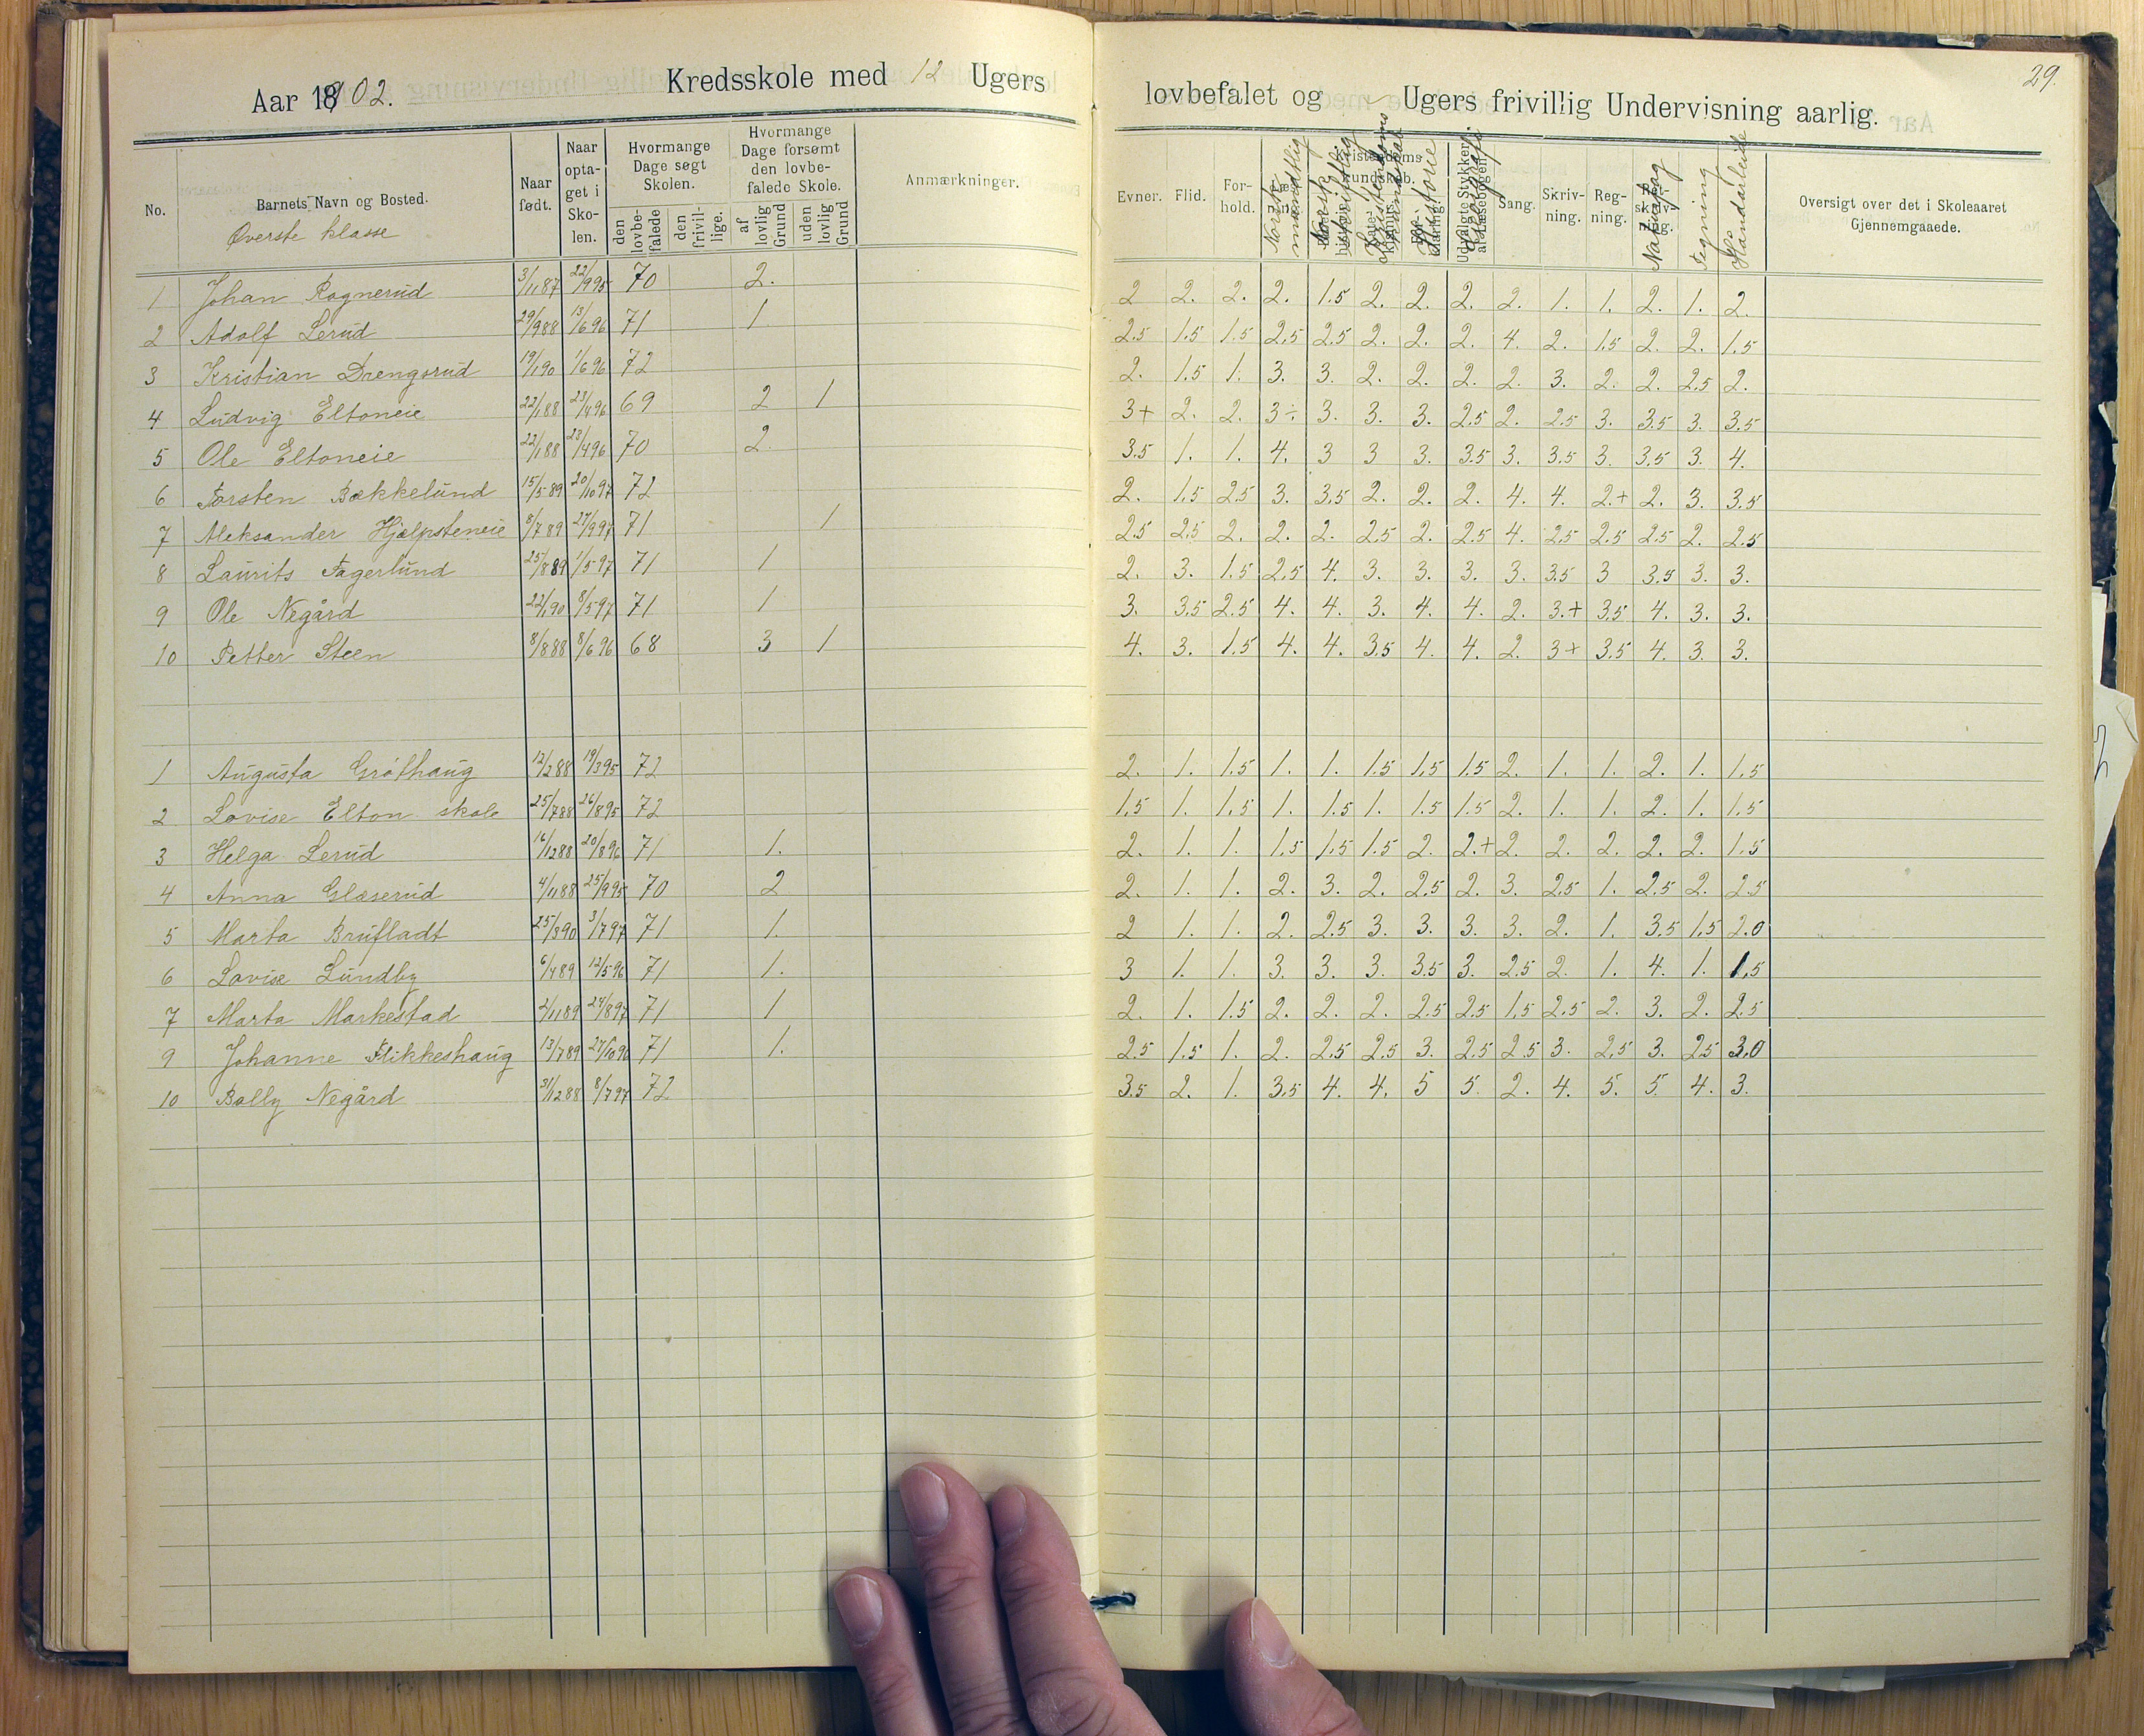 Aar 1902. Kredsskole med 12 Ugers lovbefalet og Ugers frivillig Undervisning aarlig. 29.
No. Barnets Navn og Bosted. Naar født. Naar optaget i Skolen. Hvormange Dage søgt Skolen. Hvormange Dage forsømt den lovbefalede Skole. Anmærkninger. Evner. Flid. Forhold. Sang. Skrivning. Regning. Oversigt over det i Skoleaaret Gjennemgaaede.
den lovbefalede den frivillige. af lovlig Grund uden lovlig Grund Norsk mundtlig Norsk skriftlig Kristendoms Historie Naturfag Tegning Haandarbeide
Øverste klasse
1 Johan Rognerud 3/11 87 22/9 95 70 2. 2 2. 2. 2. 1.5 2. 2. 2. 2. 1. 1. 2. 1. 2.
2 Adolf Lerud 29/9 88 13/6 96 71 1 2.5 1.5 1.5 2.5 2.5 2. 2. 2. 4. 2. 1.5 2. 2. 1.5
3 Kristian Drengsrud 19/1 90 1/6 96 72 2. 1.5 1. 3. 3. 2. 2. 2. 2. 3. 2. 2. 2.5 2.
4 Ludvig Eltoneie 22/1 88 23/4 96 69 2 1 3+ 2. 2. 3÷ 3. 3. 3. 2.5 2. 2.5 3. 3.5 3. 3.5
5 Ole Eltoneie 22/1 88 23/4 96 70 2. 3.5 1. 1. 4. 3 3 3. 3.5 3. 3.5 3. 3.5 3. 4.
6 Torsten Bækkelund 15/5 89 20/10 97 72 2. 1.5 2.5 3. 3.5 2. 2. 2. 4. 4. 2+ 2. 3. 3.5
7 Aleksander Hjælpsteneie 8/7 89 27/9 97 71 1 2.5 2.5 2. 2. 2. 2.5 2. 2.5 4. 2.5 2.5 2.5 2. 2.5
8 Laurits Fagerlund 25/8 89 1/5 97 71 1 2. 3. 1.5 2.5 4. 3. 3. 3. 3. 3.5 3 3.5 3. 3.
9 Ole Negård 22/1 90 8/5 97 71 1 3. 3.5 2.5 4. 4. 3. 4. 4. 2. 3.+ 3.5 4. 3. 3.
10 Petter Steen 8/8 88 8/6 96 68 3 1 4. 3. 1.5 4. 4. 3.5 4. 4. 2. 3+ 3.5 4. 3. 3.
1 Augusta Gråthaug 12/2 88 19/3 95 72 2. 1. 1.5 1. 1. 1.5 1.5 1.5 2. 1. 1. 2. 1. 1.5
2 Lovise Elton skole 25/7 88 26/8 95 72 1.5 1. 1.5 1. 1.5 1. 1.5 1.5 2. 1. 1. 2. 1. 1.5
3 Helga Lerud 16/12 88 20/8 96 71 1. 2. 1. 1. 1.5 1.5 1.5 2. 2.+ 2. 2. 2. 2. 2. 1.5
4 Anna Glæserud 4/11 88 25/9 95 70 2 2. 1. 1. 2. 3. 2. 2.5 2. 3. 2.5 1. 2.5 2. 2.5
5 Marta Brufladt 25/3 90 3/7 97 71 1. 2 1. 1. 2. 2.5 3. 3. 3. 3. 2. 1. 3.5 1.5 2.0
6 Lovise Lundby 6/4 89 12/5 96 71 1. 3 1. 1. 3. 3. 3. 3.5 3. 2.5 2. 1. 4. 1. 1.5
7 Marta Markestad 2/11 89 24/8 97 71 1 2. 1. 1.5 2. 2. 2. 2.5 2.5 1.5 2.5 2. 3. 2. 2.5
9 Johanne Flikkeshaug 13/7 89 27/10 96 71 1. 2.5 1.5 1. 2. 2.5 2.5 3. 2.5 2.5 3. 2.5 3. 2.5 3.0
10 Bolly Negård 31/12 88 8/7 97 72 3.5 2. 1. 3.5 4. 4. 5 5. 2. 4. 5. 5. 4. 3.